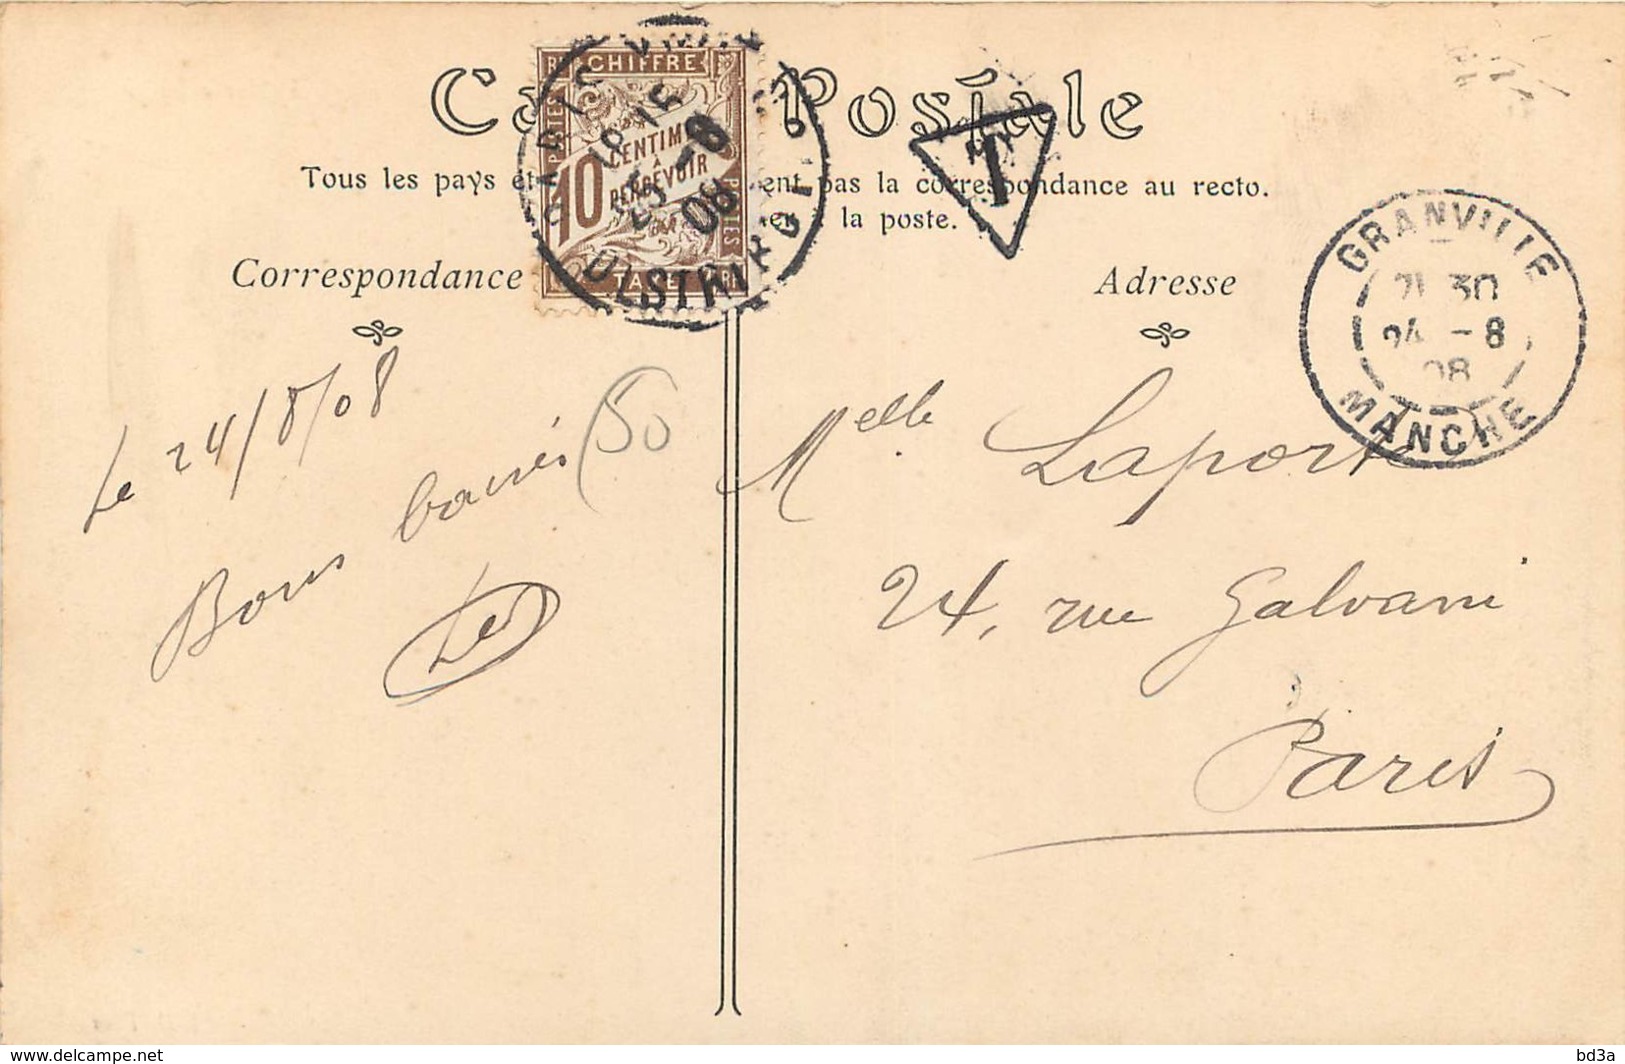 Ca Postale
Tous les pays ét ent pas la correspondance au recto.
er à la poste.
Correspondance
Adresse
CHIFFRE
POSTES
10 CENTIM
À
PERCEVOIR
TAXE
18 15
25 -8
08
DISTRIB
T
GRANVILLE
21 30
24 -8
08
MANCHE
Le 24/8/08
Bons baisers
50
Melle Laporte
24, rue Galvani
Paris
www.delcampe.net
bd3a